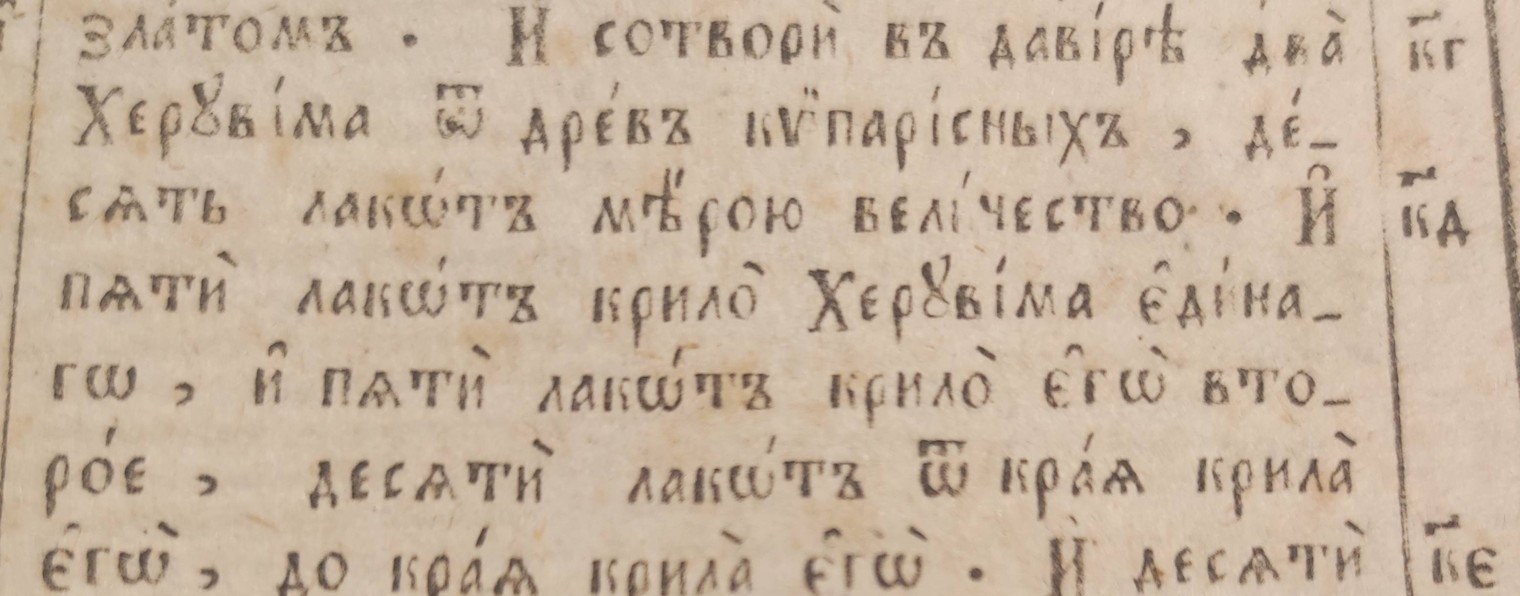 зла́томъ . И҆ сотворѝ въ даві́рѣ два̀ к҃г
Херꙋві́ма ѿ дре́въ кѵ̈парі́сныхъ , де́_
сѧть лакѡ́тъ мѣ́рою велі́чество . И҆ к҃д
пѧтѝ лакѡ́тъ крило̀ Херꙋві́ма є҆ди́на_
гѡ , и҆ пѧтѝ лакѡ́тъ крило̀ є҆гѡ̀ вто_
ро́е , десѧтѝ лакѡ́тъ ѿ кра́ѧ крила̀
є҆гѡ̀ , до кра́ѧ крила̀ є҆гѡ̀ . И҆ десѧтѝ к҃є